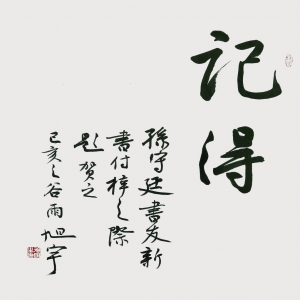 记得
孫守廷書友新
書付梓之際
題賀之
己亥之谷雨旭宇